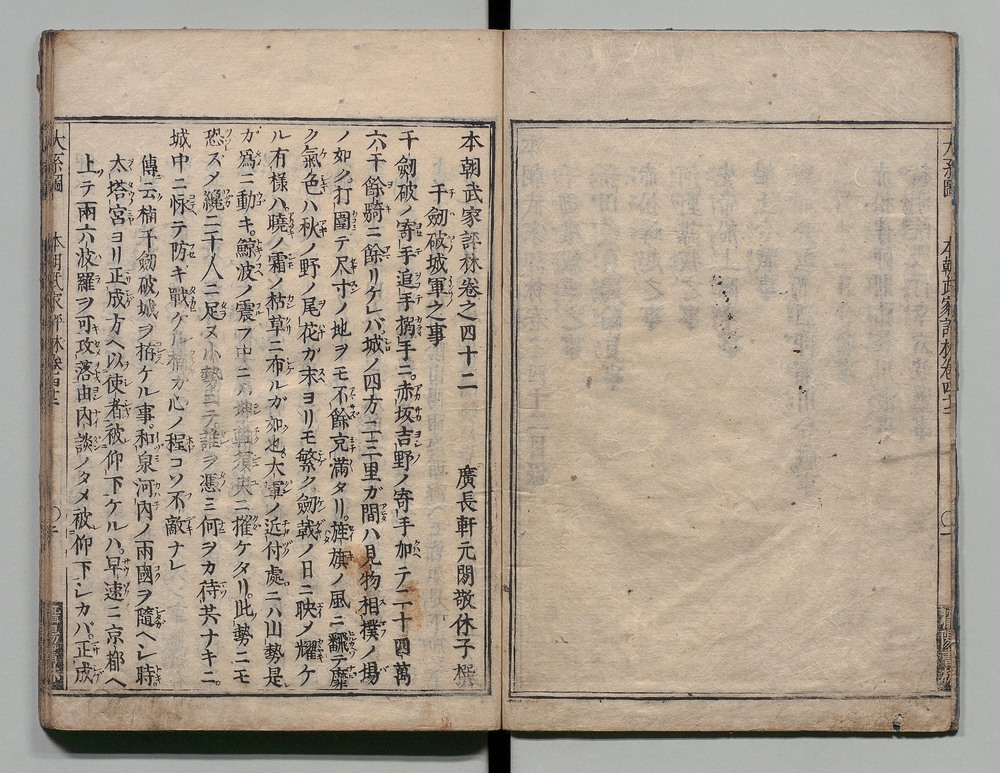 本朝武家評林卷之四十二　　廣長軒元閑敬休子撰
千劔破城軍之事
千劔破ノ寄手追手搦手ニ赤坂吉野ノ寄手加テ二十四萬
六千餘騎ニ餘リケレバ城ノ四方二三里ガ間ハ見物相撲ノ場
ノ如ク打圍テ尺寸ノ地ヲモ不餘充滿タリ旌旗ノ風ニ翻テ靡
ク氣色ハ秋ノ野ノ尾花ガ末ヨリモ繁ク劔戟ノ日ニ映メ耀ケ
ル有様ハ曉ノ霜ノ枯草ニ布ルガ如也大軍ノ近付處ニハ山勢是
ガ爲ニ動キ鯨波ノ震フ中ニハ坤軸須臾ニ摧ケタリ此勢ニモ
恐ズメ纔二十人ニ足ヌ小勢ニテ誰ヲ憑ミ何ヲカ待共ナキニ
城中ニ怺テ防ギ戰ケル楠ガ心ノ程コソ不敵ナレ
傳云楠千劔破城ヲ拵ケル事和泉河內ノ兩國ヲ隨ヘシ時
大塔宮ヨリ正成方ヘ以使者被仰下ケルハ早速ニ京都ヘ
上テ兩六波羅ヲ可攻落由內談ノタメ被仰下シカバ正成
大系圖　本朝武家評林卷四十二